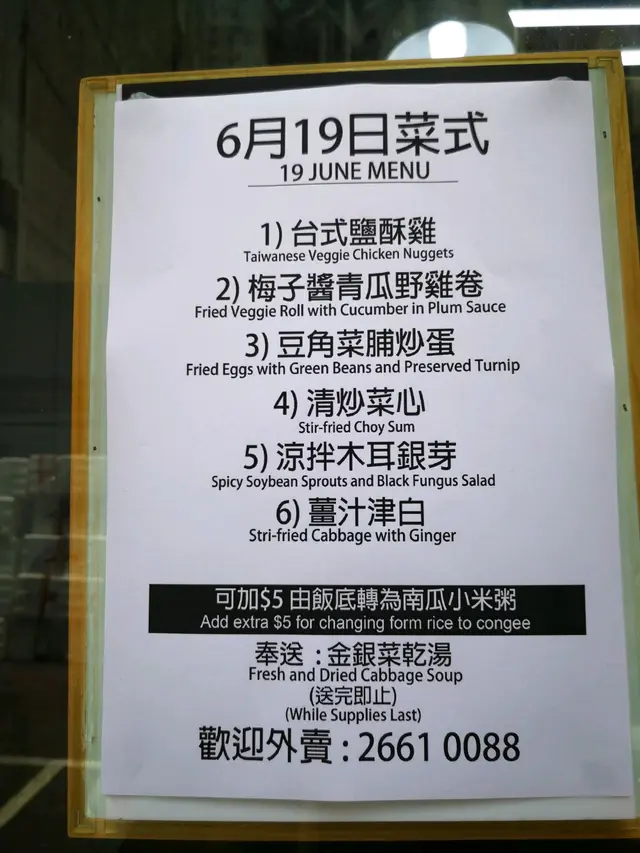 6月19日菜式
19 JUNE MENU
1) 台式鹽酥雞
Taiwanese Veggie Chicken Nuggets
2) 梅子醬青瓜野雞卷
Fried Veggie Roll with Cucumber in Plum Sauce
3) 豆角菜脯炒蛋
Fried Eggs with Green Beans and Preserved Turnip
4) 清炒菜心
Stir-fried Choy Sum
5) 涼拌木耳銀芽
Spicy Soybean Sprouts and Black Fungus Salad
6) 薑汁津白
Stri-fried Cabbage with Ginger
可加$5 由飯底轉為南瓜小米粥
Add extra $5 for changing form rice to congee
奉送 : 金銀菜乾湯
Fresh and Dried Cabbage Soup
(送完即止)
(While Supplies Last)
歡迎外賣 : 2661 0088